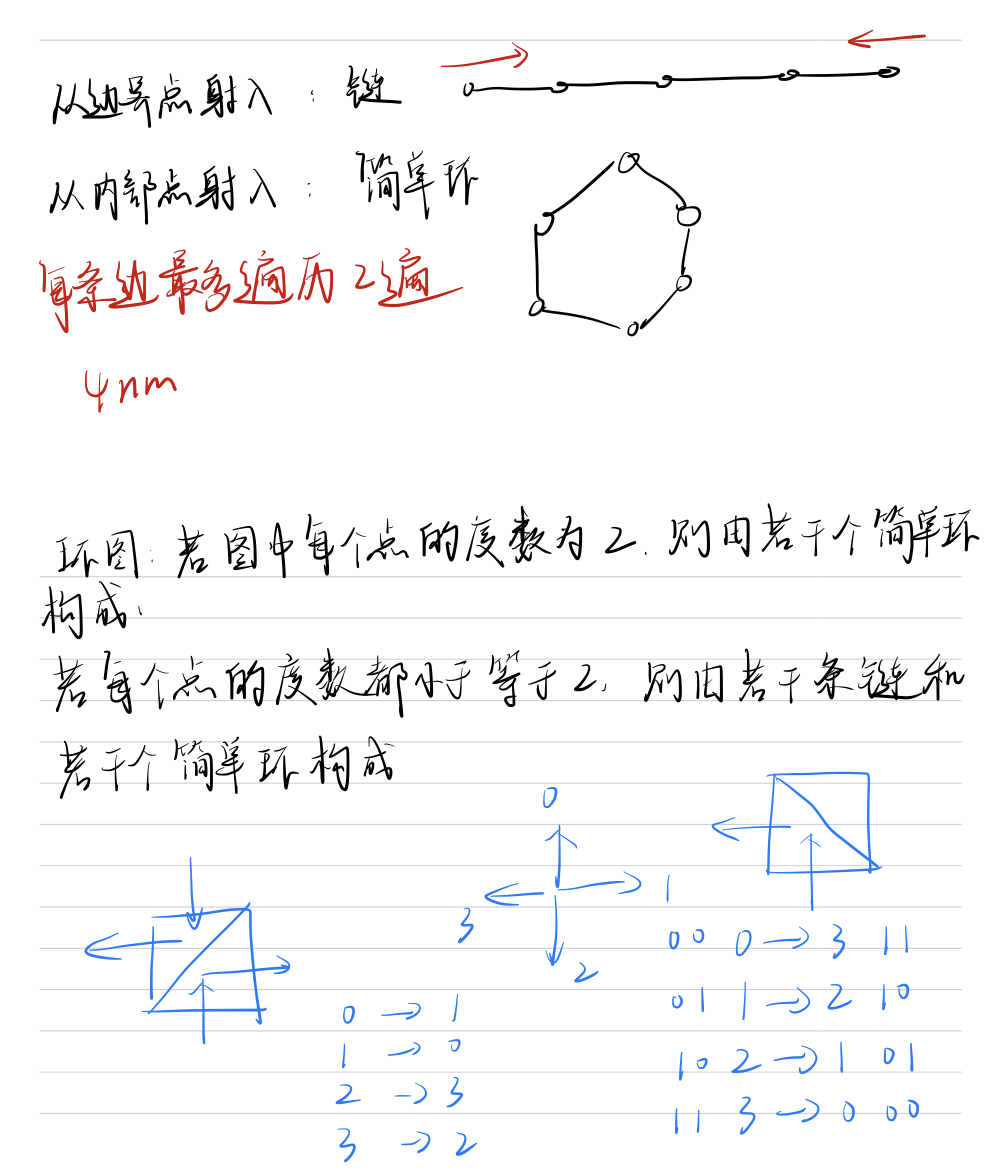 从边界点射入：链
从内部点射入：简单环
每条边最多遍历2遍
4nm
环图：若图中每个点的度数为2，则由若干个简单环
构成.
若每个点的度数都小于等于2，则由若干条链和
若干个简单环构成
0
1
2
3
0 → 1
1 → 0
2 → 3
3 → 2
00 0 → 3 11
01 1 → 2 10
10 2 → 1 01
11 3 → 0 00